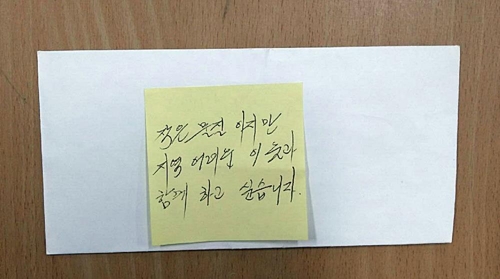 작은 물질 이지만
지역 어려운 이웃과
함께 하고 싶습니다.